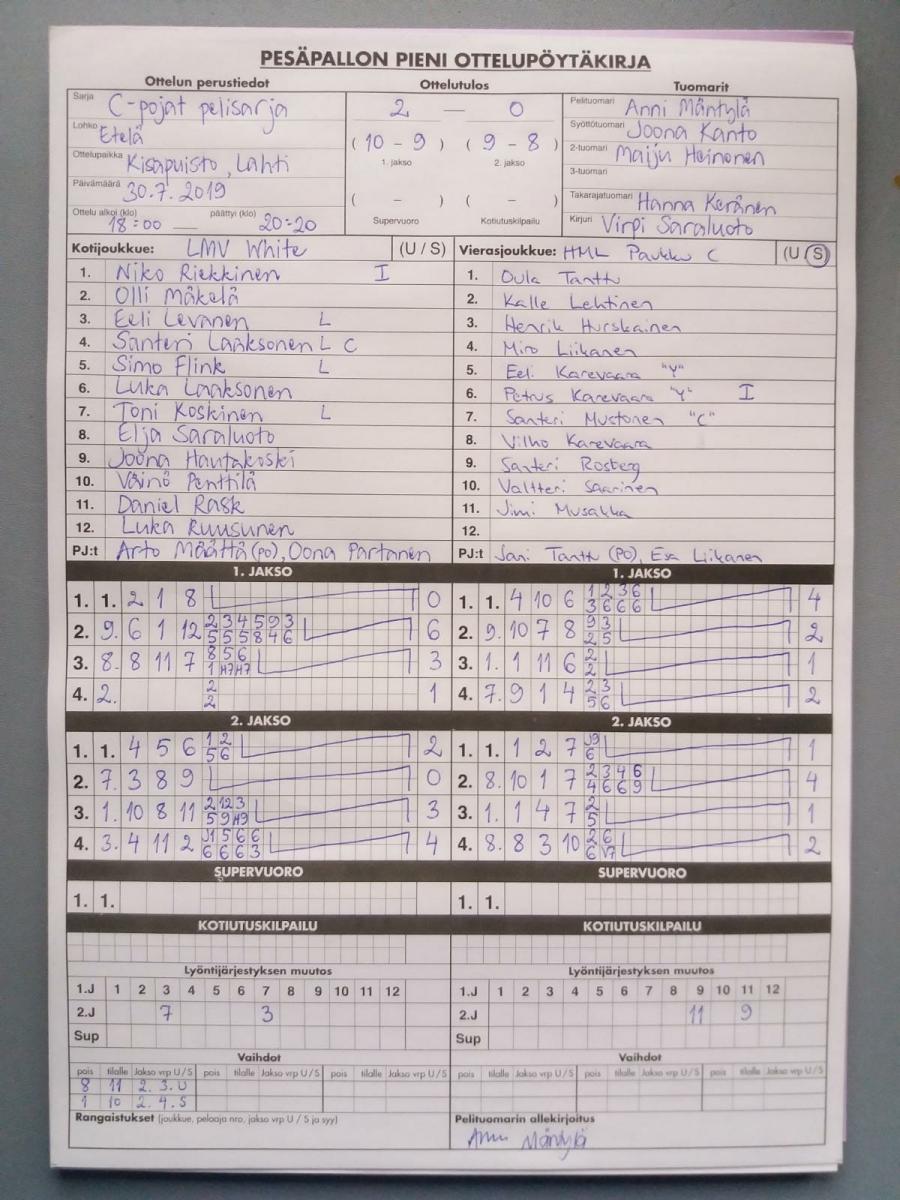 PESÄPALLON PIENI OTTELUPÖYTÄKIRJA
Ottelun perustiedot Ottelutulos Tuomarit
Sarja C-pojat pelisarja
Lohko Etelä
Ottelupaikka Kisapuisto, Lahti
Päivämäärä 30.7.2019
Ottelu alkoi (klo) 18:00 päättyi (klo) 20:20
2 — 0
( 10 - 9 ) ( 9 - 8 )
1. jakso 2. jakso
( – ) ( – )
Supervuoro Kotiutuskilpailu
Pelituomari Anni Mäntylä
Syöttötuomari Joona Kanto
2-tuomari Maiju Heinonen
3-tuomari
Takarajatuomari Hanna Keränen
Kirjuri Virpi Saraluoto
Kotijoukkue: LMV White (U / S)
1. Niko Riekkinen I
2. Olli Mäkelä
3. Eeli Levanen L
4. Santeri Laaksonen L C
5. Simo Flink L
6. Luka Laaksonen
7. Toni Koskinen L
8. Elja Saraluoto
9. Joona Hautakoski
10. Väinö Penttilä
11. Daniel Rask
12. Luka Ruusunen
PJ:t Arto Määttä (PO), Oona Partanen
Vierasjoukkue: HML Paukku C (U S)
1. Oula Tanttu
2. Kalle Lehtinen
3. Henrik Hurskainen
4. Miro Liikanen
5. Eeli Karevaara "Y"
6. Petrus Karevaara "Y" I
7. Santeri Mustonen "C"
8. Vilho Karevaara
9. Santeri Rosberg
10. Valtteri Saarinen
11. Jimi Musakka
12.
PJ:t Jani Tanttu (PO), Esa Liikanen
1. JAKSO
1. 1. 2 1 8 0
2. 9. 6 1 12 2 3 4 5 9 3 6
5 5 5 8 4 6
3. 8. 8 11 7 8 5 6 3
1 H7 H7
4. 2. 2 1
2
1. JAKSO
1. 1. 4 10 6 1 2 3 6 4
3 6 6 6
2. 9. 10 7 8 9 3 2
2 5
3. 1. 1 11 6 2 1
2
4. 7. 9 1 4 2 3 2
5 6
2. JAKSO
1. 1. 4 5 6 1 2 2
5 6
2. 7. 3 8 9 0
3. 1. 10 8 11 2 12 3 3
5 9 H9
4. 3. 4 11 2 J1 5 6 6 4
6 6 6 3
2. JAKSO
1. 1. 1 2 7 J9 1
6
2. 8. 10 1 7 2 3 4 6 4
4 6 6 9
3. 1. 1 4 7 2 1
5
4. 8. 8 3 10 2 6 2
6 V7
SUPERVUORO SUPERVUORO
1. 1. 1. 1.
KOTIUTUSKILPAILU KOTIUTUSKILPAILU
Lyöntijärjestyksen muutos
1.J 1 2 3 4 5 6 7 8 9 10 11 12
2.J 7 3
Sup
Lyöntijärjestyksen muutos
1.J 1 2 3 4 5 6 7 8 9 10 11 12
2.J 11 9
Sup
Vaihdot
pois tilalle Jakso vrp U/S pois tilalle Jakso vrp U/S pois tilalle Jakso vrp U/S
8 11 2. 3. U
1 10 2. 4. S
Vaihdot
pois tilalle Jakso vrp U/S pois tilalle Jakso vrp U/S pois tilalle Jakso vrp U/S
Rangaistukset (joukkue, pelaaja nro, jakso vrp U / S ja syy)
Pelituomarin allekirjoitus
Anni Mäntylä